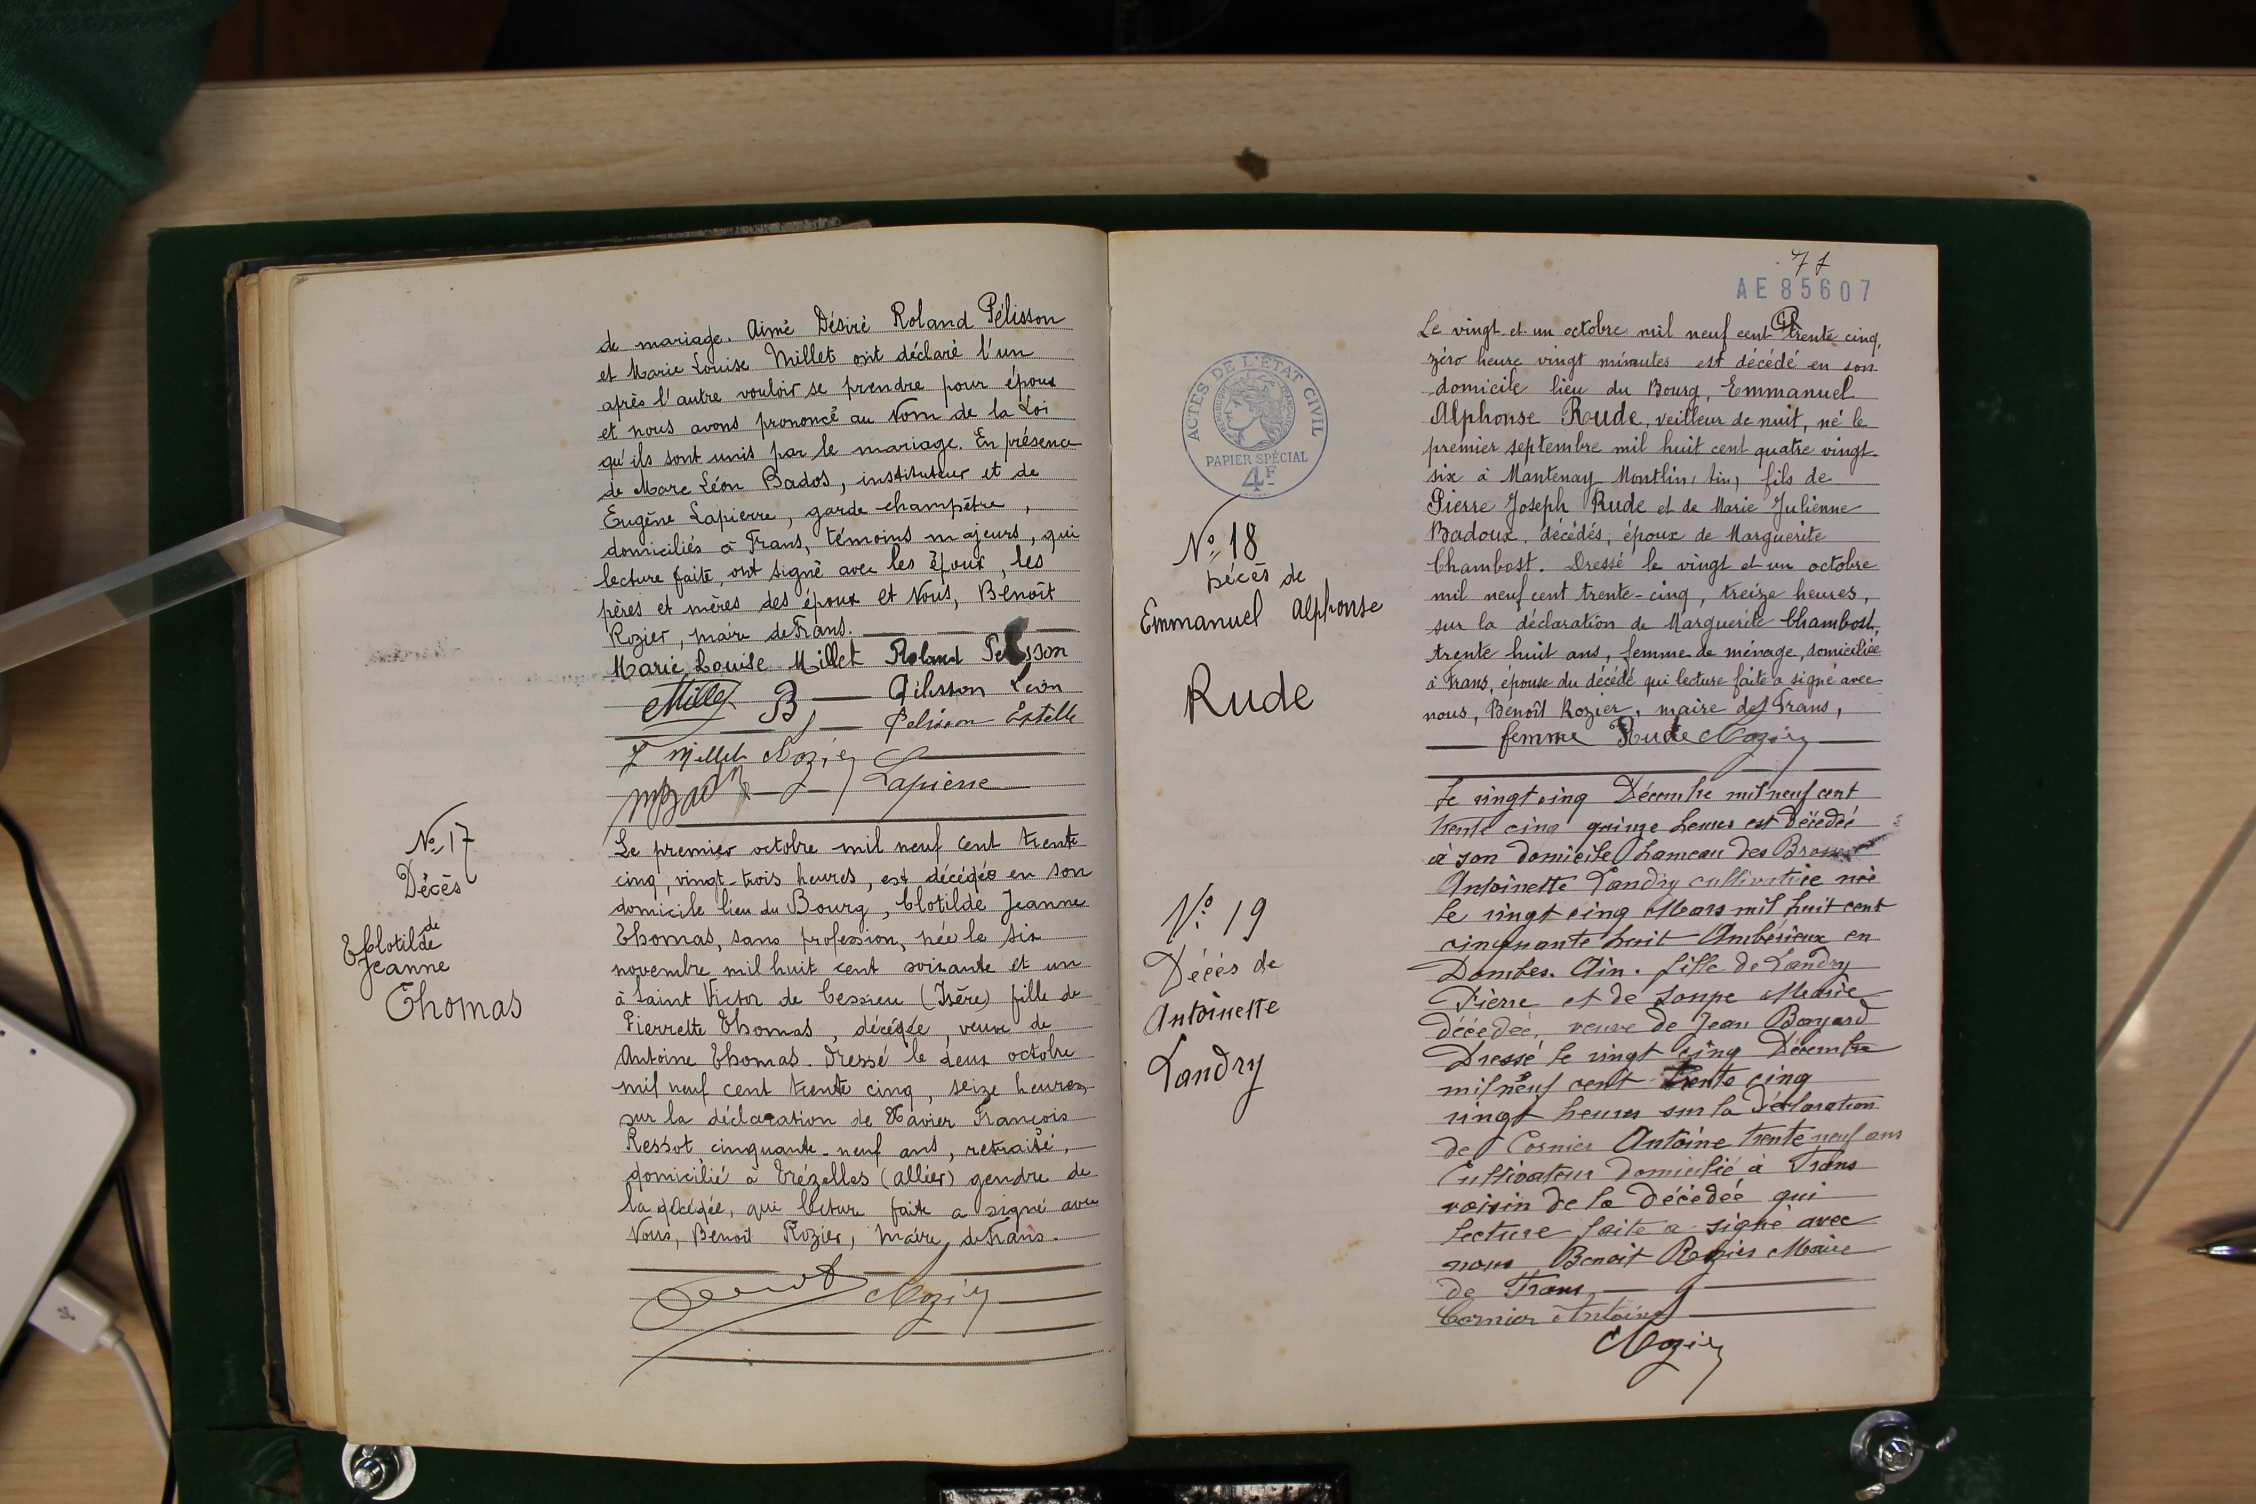 de mariage. Aimé Désiré Roland Pélisson
et Marie Louise Millet ont déclaré l'un
après l'autre vouloir se prendre pour époux
et nous avons prononcé au Nom de la Loi
qu'ils sont unis par le mariage. En présence
de Marc Léon Bados, instituteur et de
Eugène Lapierre, garde-champêtre,
domiciliés à Trans, témoins majeurs, qui
lecture faite, ont signé avec les époux, les
pères et mères des époux et Nous, Benoît
Rozier, maire de Trans.
Marie Louise Millet Roland Pelisson
Millet B Pélisson Léon
Pelisson Estelle
J Millet Rozier
Lapierre
No 17
Décès
de
Clotilde
Jeanne
Thomas
Le premier octobre mil neuf cent trente
cinq, vingt-trois heures, est décédée en son
domicile lieu du Bourg, Clotilde Jeanne
Thomas, sans profession, née le six
novembre mil huit cent soixante et un
à Saint Victor de Cessieu (Isère) fille de
Pierrette Thomas, décédée, veuve de
Antoine Thomas. Dressé le deux octobre
mil neuf cent trente cinq, seize heures,
sur la déclaration de Xavier François
Ressot cinquante-neuf ans, retraité,
domicilié à Trézelles (Allier) gendre de
la décédée, qui lecture faite a signé avec
Nous, Benoît Rozier, Maire de Trans.
Rozier
71
AE 85607
ACTES DE L'ÉTAT CIVIL
PAPIER SPÉCIAL
4F
No 18
Décès de
Emmanuel Alphonse
Rude
Le vingt et un octobre mil neuf cent trente cinq,
zéro heure vingt minutes est décédé en son
domicile lieu du Bourg, Emmanuel
Alphonse Rude, veilleur de nuit, né le
premier septembre mil huit cent quatre vingt-
six à Mantenay Montlin, Ain, fils de
Pierre Joseph Rude et de Marie Julienne
Badoux, décédés, époux de Marguerite
Chambost. Dressé le vingt et un octobre
mil neuf cent trente-cinq, treize heures,
sur la déclaration de Marguerite Chambost,
trente huit ans, femme de ménage, domiciliée
à Trans, épouse du décédé qui lecture faite a signé avec
nous, Benoît Rozier, maire de Trans,
femme Rude Rozier
No 19
Décès de
Antoinette
Landry
Le vingt cinq Décembre mil neuf cent
trente cinq quinze heures est décédée
à son domicile hameau des
Antoinette Landry cultivatrice née
le vingt cinq Mars mil huit cent
cinquante huit Ambérieux en
Dombes. Ain. fille de Landry
Pierre et de Soupe Marie
décédée, veuve de Jean Bayard
Dressé le vingt cinq Décembre
mil neuf cent trente cinq
vingt heures sur la déclaration
de Cornier Antoine trente neuf ans
Cultivateur domicilié à Trans
voisin de la décédée qui
lecture faite a signé avec
nous Benoit Rozier Maire
de Trans
Cornier Antoine
Rozier